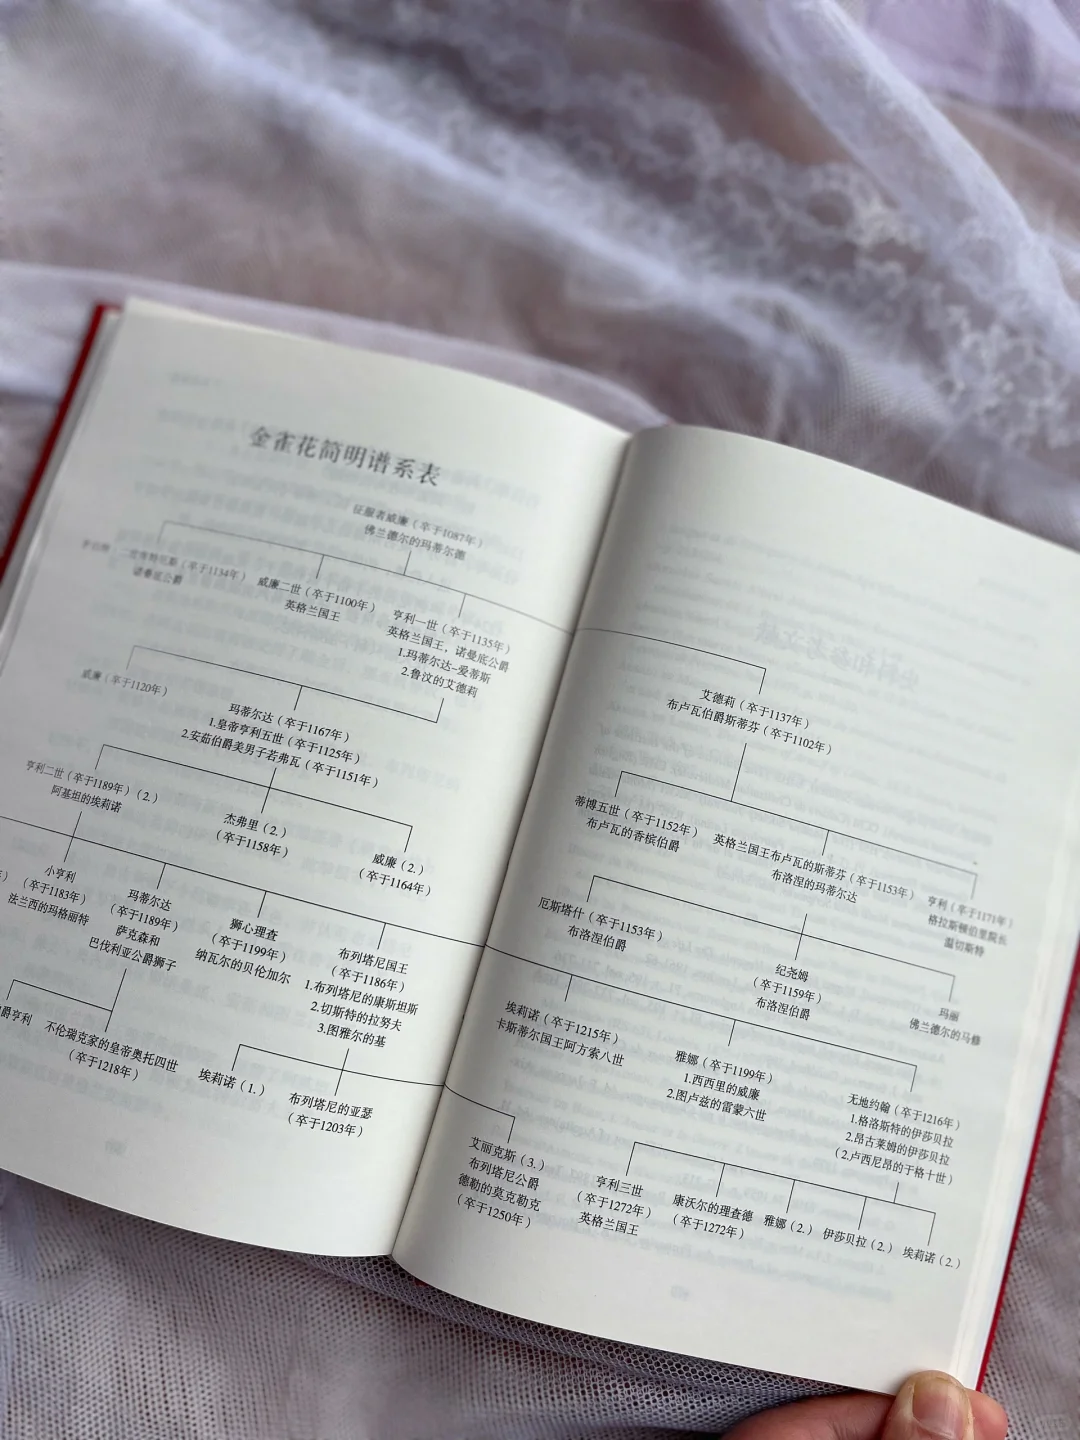 金雀花简明谱系表
征服者威廉（卒于1087年）
佛兰德尔的玛蒂尔德
二世（卒于1134年）
诺曼底公爵
威廉二世（卒于1100年）
英格兰国王
亨利一世（卒于1135年）
英格兰国王，诺曼底公爵
1.玛蒂尔达-爱蒂斯
2.鲁汶的艾德莉
威廉（卒于1120年）
玛蒂尔达（卒于1167年）
1.皇帝亨利五世（卒于1125年）
2.安茹伯爵美男子若弗瓦（卒于1151年）
亨利二世（卒于1189年）（2.）
阿基坦的埃莉诺
杰弗里（2.）
（卒于1158年）
威廉（2.）
（卒于1164年）
小亨利
（卒于1183年）
法兰西的玛格丽特
玛蒂尔达
（卒于1189年）
萨克森和
巴伐利亚公爵狮子
狮心理查
（卒于1199年）
纳瓦尔的贝伦加尔
布列塔尼国王
（卒于1186年）
1.布列塔尼的康斯坦斯
2.切斯特的拉努夫
3.图雅尔的基
爵亨利
不伦瑞克家的皇帝奥托四世
（卒于1218年）
埃莉诺（1.）
布列塔尼的亚瑟
（卒于1203年）
艾德莉（卒于1137年）
布卢瓦伯爵斯蒂芬（卒于1102年）
蒂博五世（卒于1152年）
布卢瓦的香槟伯爵
英格兰国王布卢瓦的斯蒂芬（卒于1153年）
布洛涅的玛蒂尔达
亨利（卒于1171年）
格拉斯顿伯里院长
温切斯特
厄斯塔什（卒于1153年）
布洛涅伯爵
纪尧姆
（卒于1159年）
布洛涅伯爵
玛丽
佛兰德尔的马修
埃莉诺（卒于1215年）
卡斯蒂尔国王阿方索八世
雅娜（卒于1199年）
1.西西里的威廉
2.图卢兹的雷蒙六世
无地约翰（卒于1216年）
1.格洛斯特的伊莎贝拉
2.昂古莱姆的伊莎贝拉
（2.卢西尼昂的于格十世）
艾丽克斯（3.）
布列塔尼公爵
德勒的莫克勒克
（卒于1250年）
亨利三世
（卒于1272年）
英格兰国王
康沃尔的理查德
（卒于1272年）
雅娜（2.）
伊莎贝拉（2.）
埃莉诺（2.）